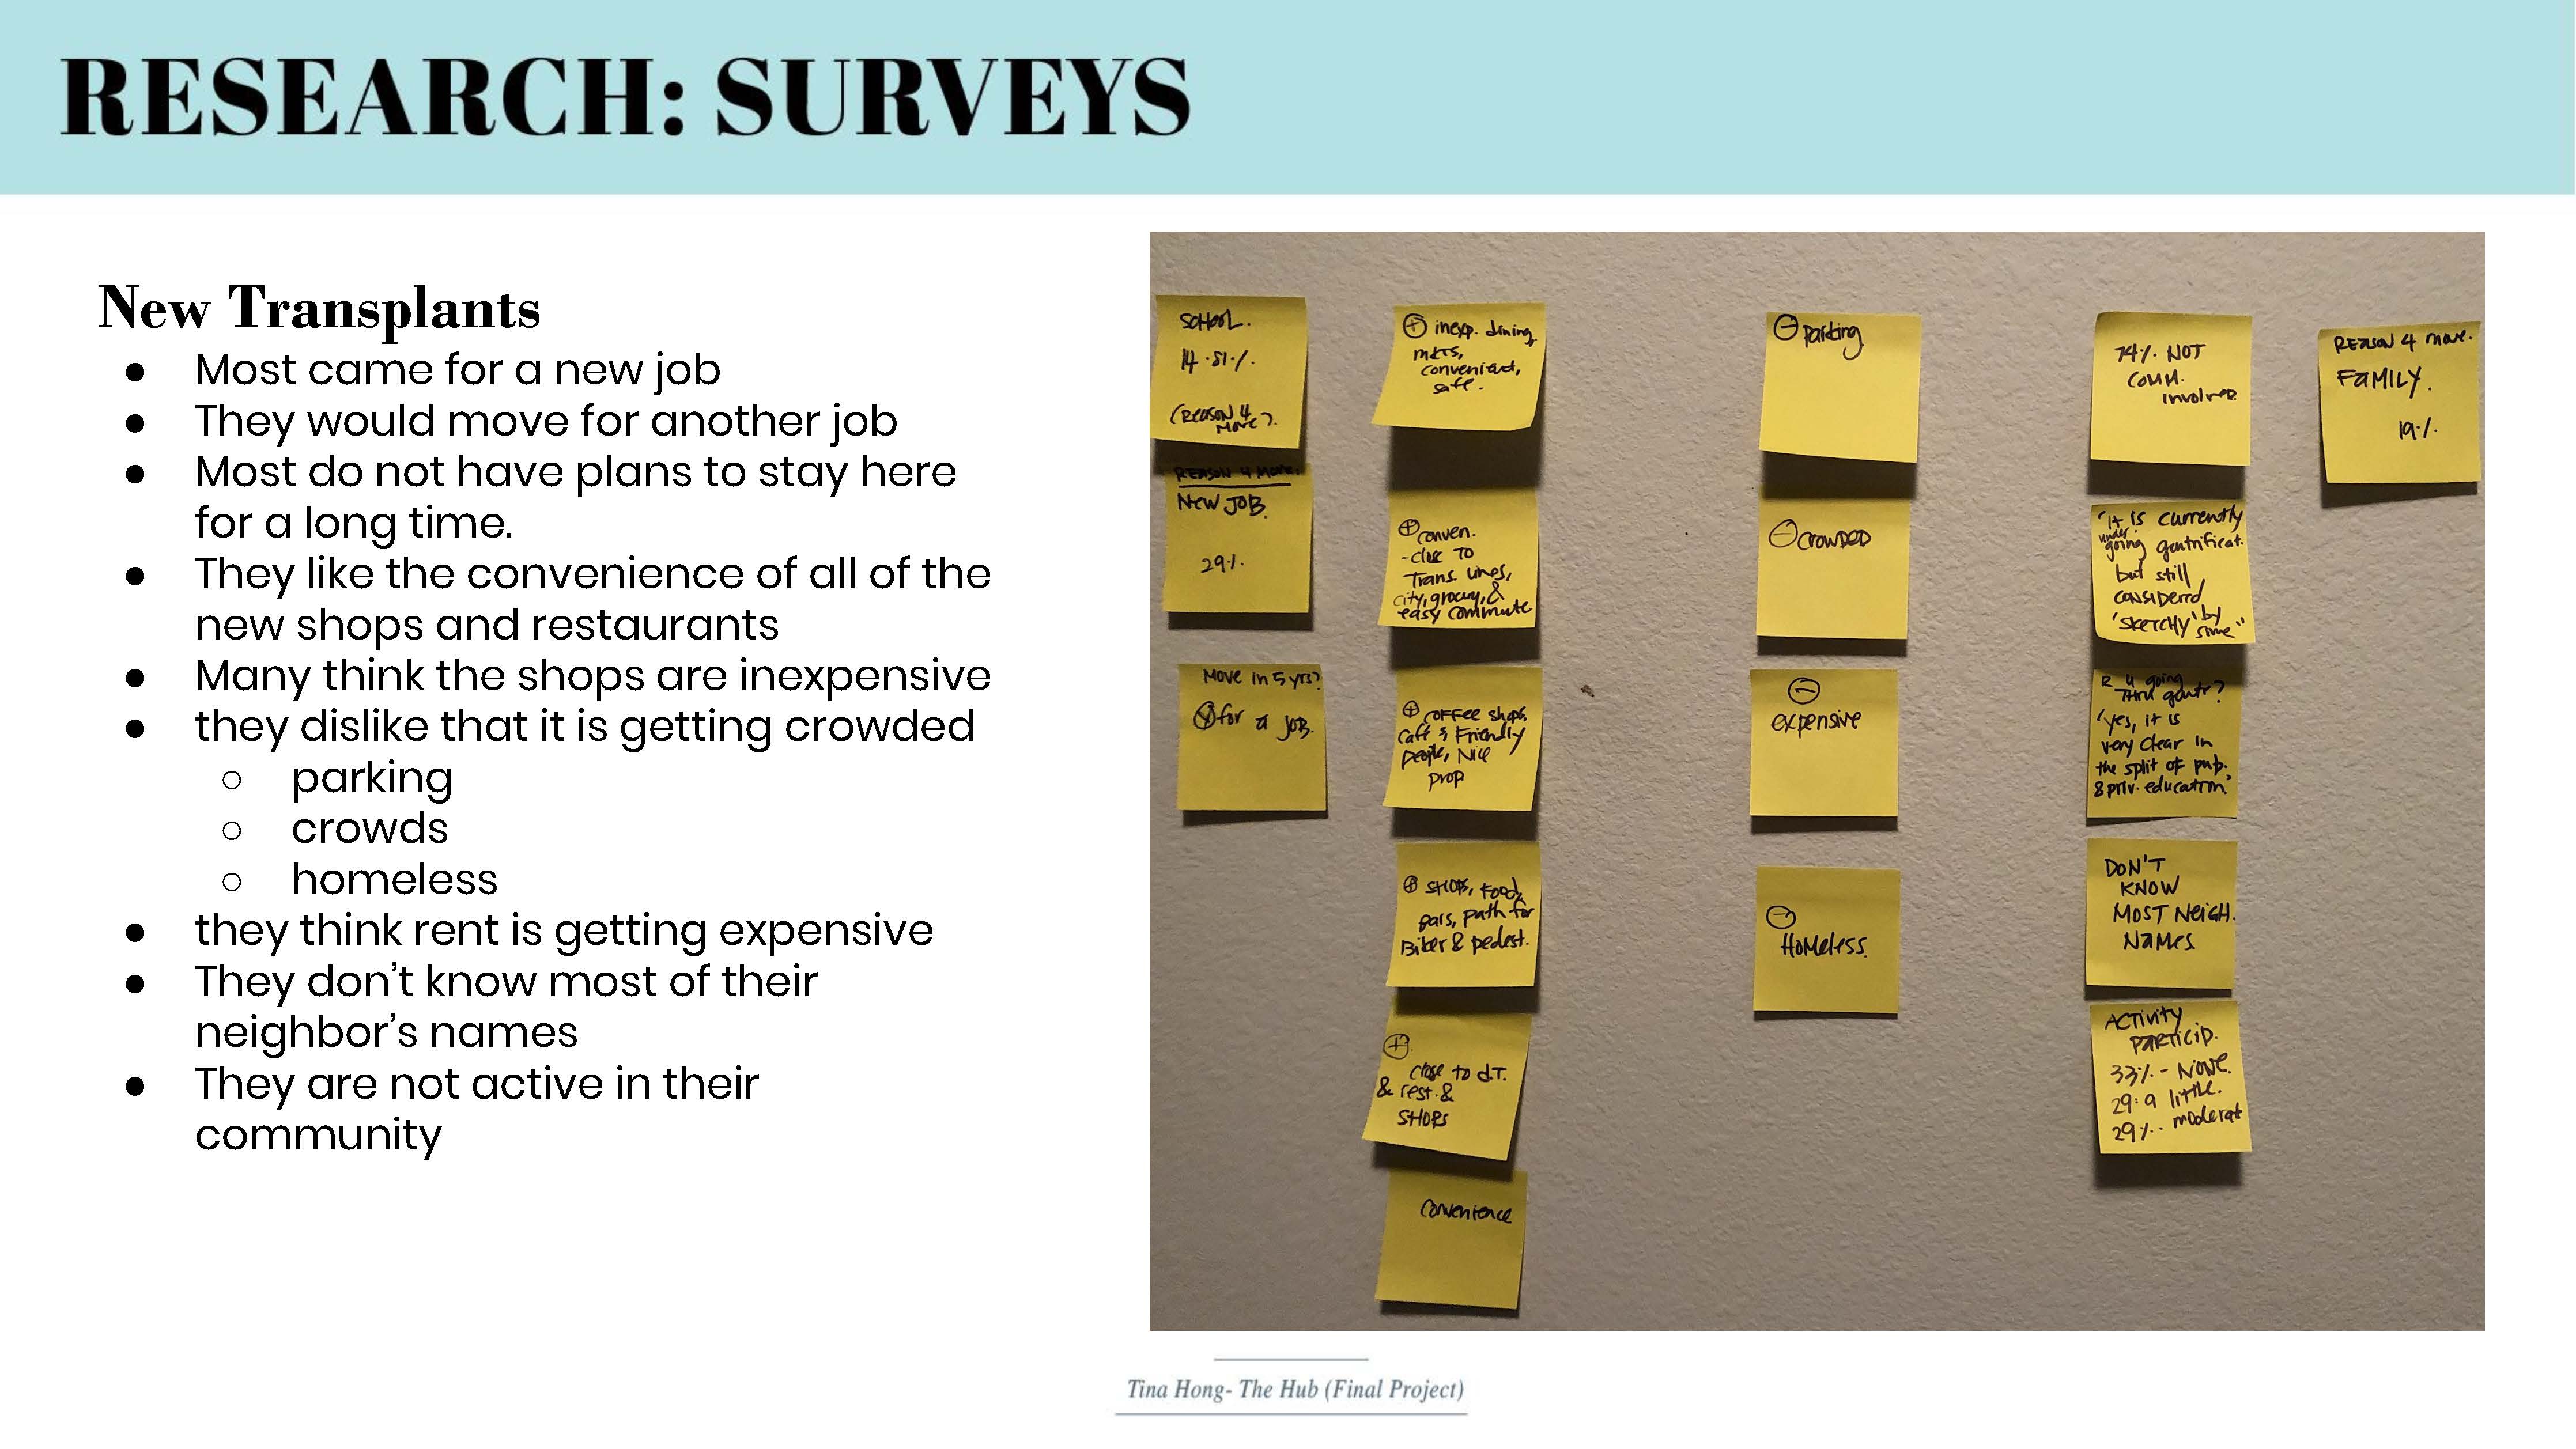 RESEARCH: SURVEYS
New Transplants
● Most came for a new job
● They would move for another job
● Most do not have plans to stay here
for a long time.
● They like the convenience of all of the
new shops and restaurants
● Many think the shops are inexpensive
● they dislike that it is getting crowded
○ parking
○ crowds
○ homeless
● they think rent is getting expensive
● They don’t know most of their
neighbor’s names
● They are not active in their
community
SCHOOL.
14.81%
(REASON 4
MOVE).
REASON 4 MOVE.
NEW JOB
29%.
MOVE in 5 yrs?
for a JOB.
⊕ inexp. dining,
mkts,
convenient,
safe.
⊕ conven.
- close TO
Trans. lines,
city, grocery, &
easy commute
⊕ coffee shops,
Friendly
people, Nice
prop
⊕ SHOPS, Food,
bars, path for
Biker & pedest.
⊕
close to d.T.
& rest. &
SHOPS
Convenience
⊖ Parking
⊖ CROWDED
⊖
expensive
⊖
HOMELESS.
74%. NOT
COMM.
involved
"it is currently
under
going gentrificat.
but still
considered
'SKETCHY' by
some"
R U going
THRU gentr?
"yes, it is
very clear in
the split of pub.
& priv. education"
DON'T
KNOW
MOST NEIGH.
NAMES
ACTIVITY
PARTICIP.
33%. - NONE.
29: a little.
29%.. moderat
REASON 4 move.
FAMILY.
19%.
Tina Hong- The Hub (Final Project)